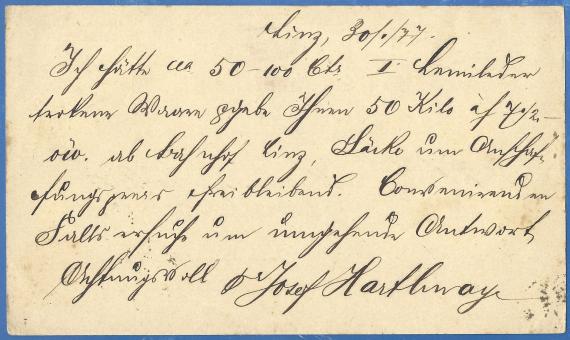 Linz, 30/ /77.
Ich hätte ca 50-100 Ctr I
Waare gebe Ihnen 50 Kilo à f
öW. ab Bahnhof Linz, Säcke um Anschaf-
fungspreis freibleibend. Convenirenden
Falls ersuche um umgehende Antwort
Achtungsvoll Josef Hartlmayr